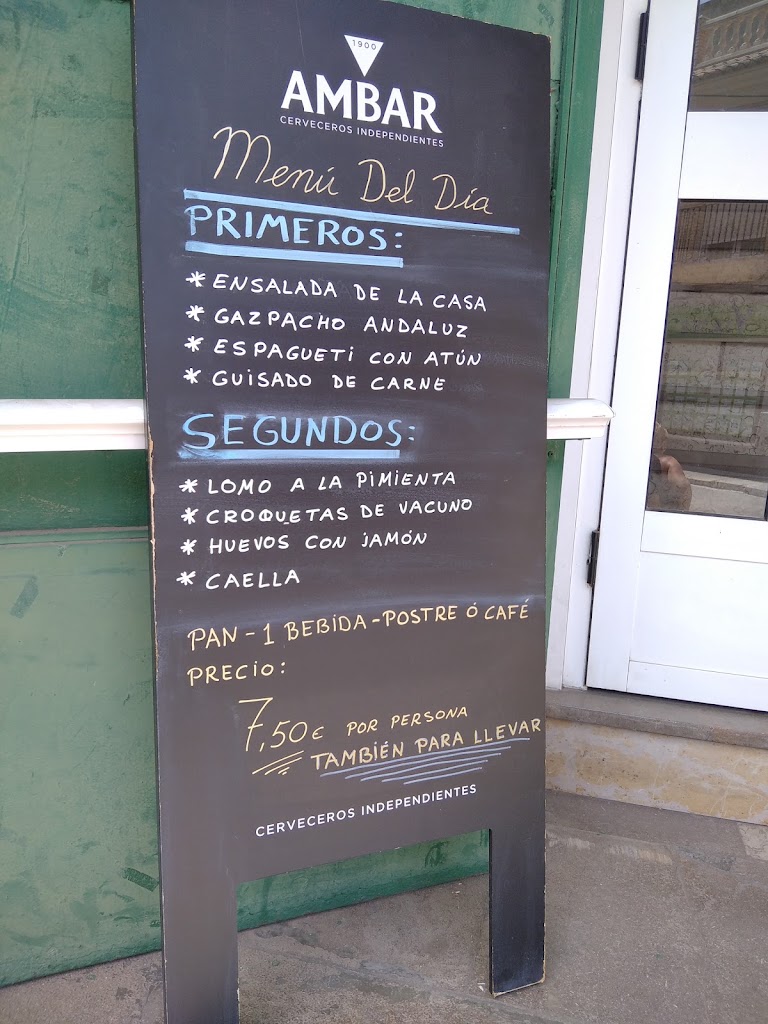 1900
AMBAR
CERVECEROS INDEPENDIENTES
Menú Del Día
PRIMEROS:
* ENSALADA DE LA CASA
* GAZPACHO ANDALUZ
* ESPAGUETI CON ATÚN
* GUISADO DE CARNE
SEGUNDOS:
* LOMO A LA PIMIENTA
* CROQUETAS DE VACUNO
* HUEVOS CON JAMÓN
* CAELLA
PAN - 1 BEBIDA - POSTRE Ó CAFÉ
PRECIO:
7,50€ POR PERSONA
TAMBIÉN PARA LLEVAR
CERVECEROS INDEPENDIENTES